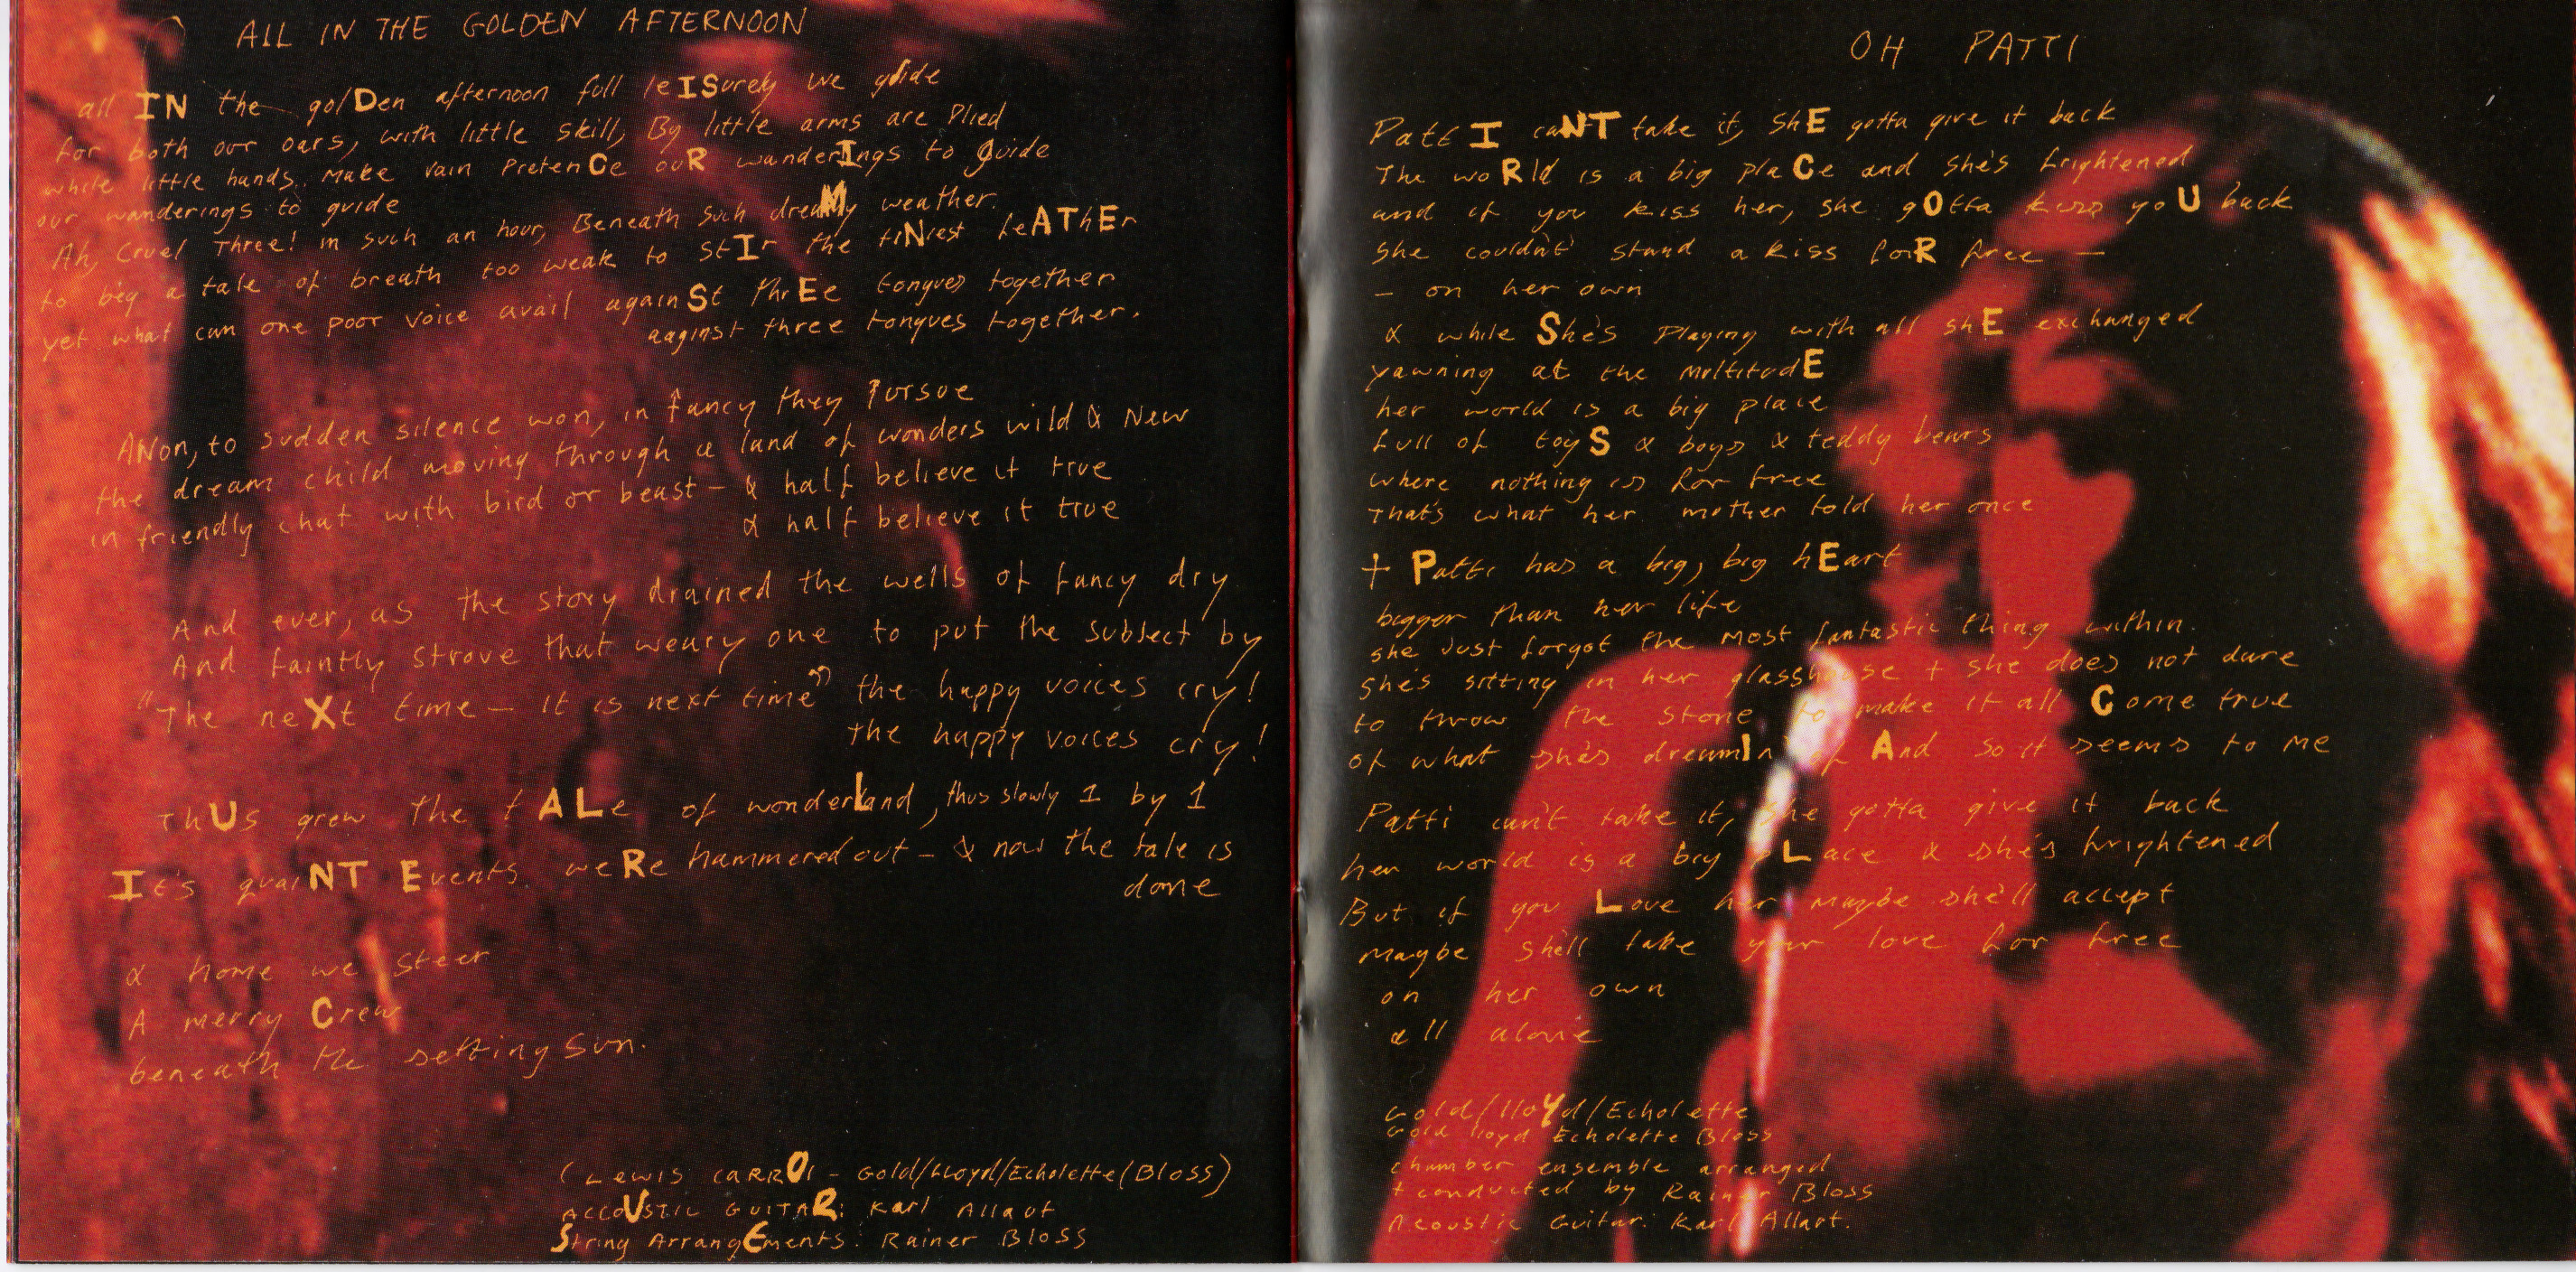 ALL IN THE GOLDEN AFTERNOON
all IN the golDen afternoon full leISurely we glide
for both our oars, with little skill, By little arms are Plied
while little hands make vain PretenCe ouR wanderIngs to guide
our wanderings to guide
Ah, Cruel Three! in such an hour, Beneath such dreaMy weather.
to beg a tale of breath too weak to stIr the tiNiest feATHEr
yet what can one poor voice avail againSt thrEe tongues together
aaginst three tongues together.
ANon, to sudden silence won, in fancy they Pursue
the dream child moving through a land of wonders wild & New
in friendly chat with bird or beast - & half believe it true
& half believe it true
And ever, as the story drained the wells of fancy dry
And faintly strove that weary one to put the subject by
"The neXt time - It is next time" the happy voices cry!
the happy voices cry!
ThUs grew the tALe of wonderLand, thus slowly 1 by 1
It's quaiNT Events weRe hammered out - & now the tale is
done
& home we steer
A merry Crew
beneath the setting Sun.
(LEWIS CARROl - Gold/Lloyd/Echolette(Bloss)
ACCOUSTIC GUITAR: Karl Allaut
String ArrangEments: Rainer Bloss
OH PATTI
Patt I caNT take it, ShE gotta give it back
The woRld is a big plaCe and she's frightened
and if you kiss her, she gOtta kiss yoU back
She couldn't stand a kiss foR free -
- on her own
& while She's Playing with all shE exchanged
yawning at the multitudE
her world is a big place
full of toyS & boys & teddy bears
where nothing is for free
That's what her mother told her once
+ Patti has a big, big hEart
bigger than her life
she Just forgot the most fantastic thing within.
She's sitting in her glasshouse + she does not dare
to throw the stone to make it all Come true
of what she's dreamIn' of And so it seems to me
Patti can't take it, she gotta give it back
her world is a big pLace & she's frightened
But if you Love her maybe she'll accept
maybe she'll take your love for free
on her own
all alone
Gold/lloYd/Echolette
Gold lloyd Echolette Bloss
chamber ensemble arranged
+ conducted by Rainer Bloss
Acoustic Guitar: Karl Allaut.